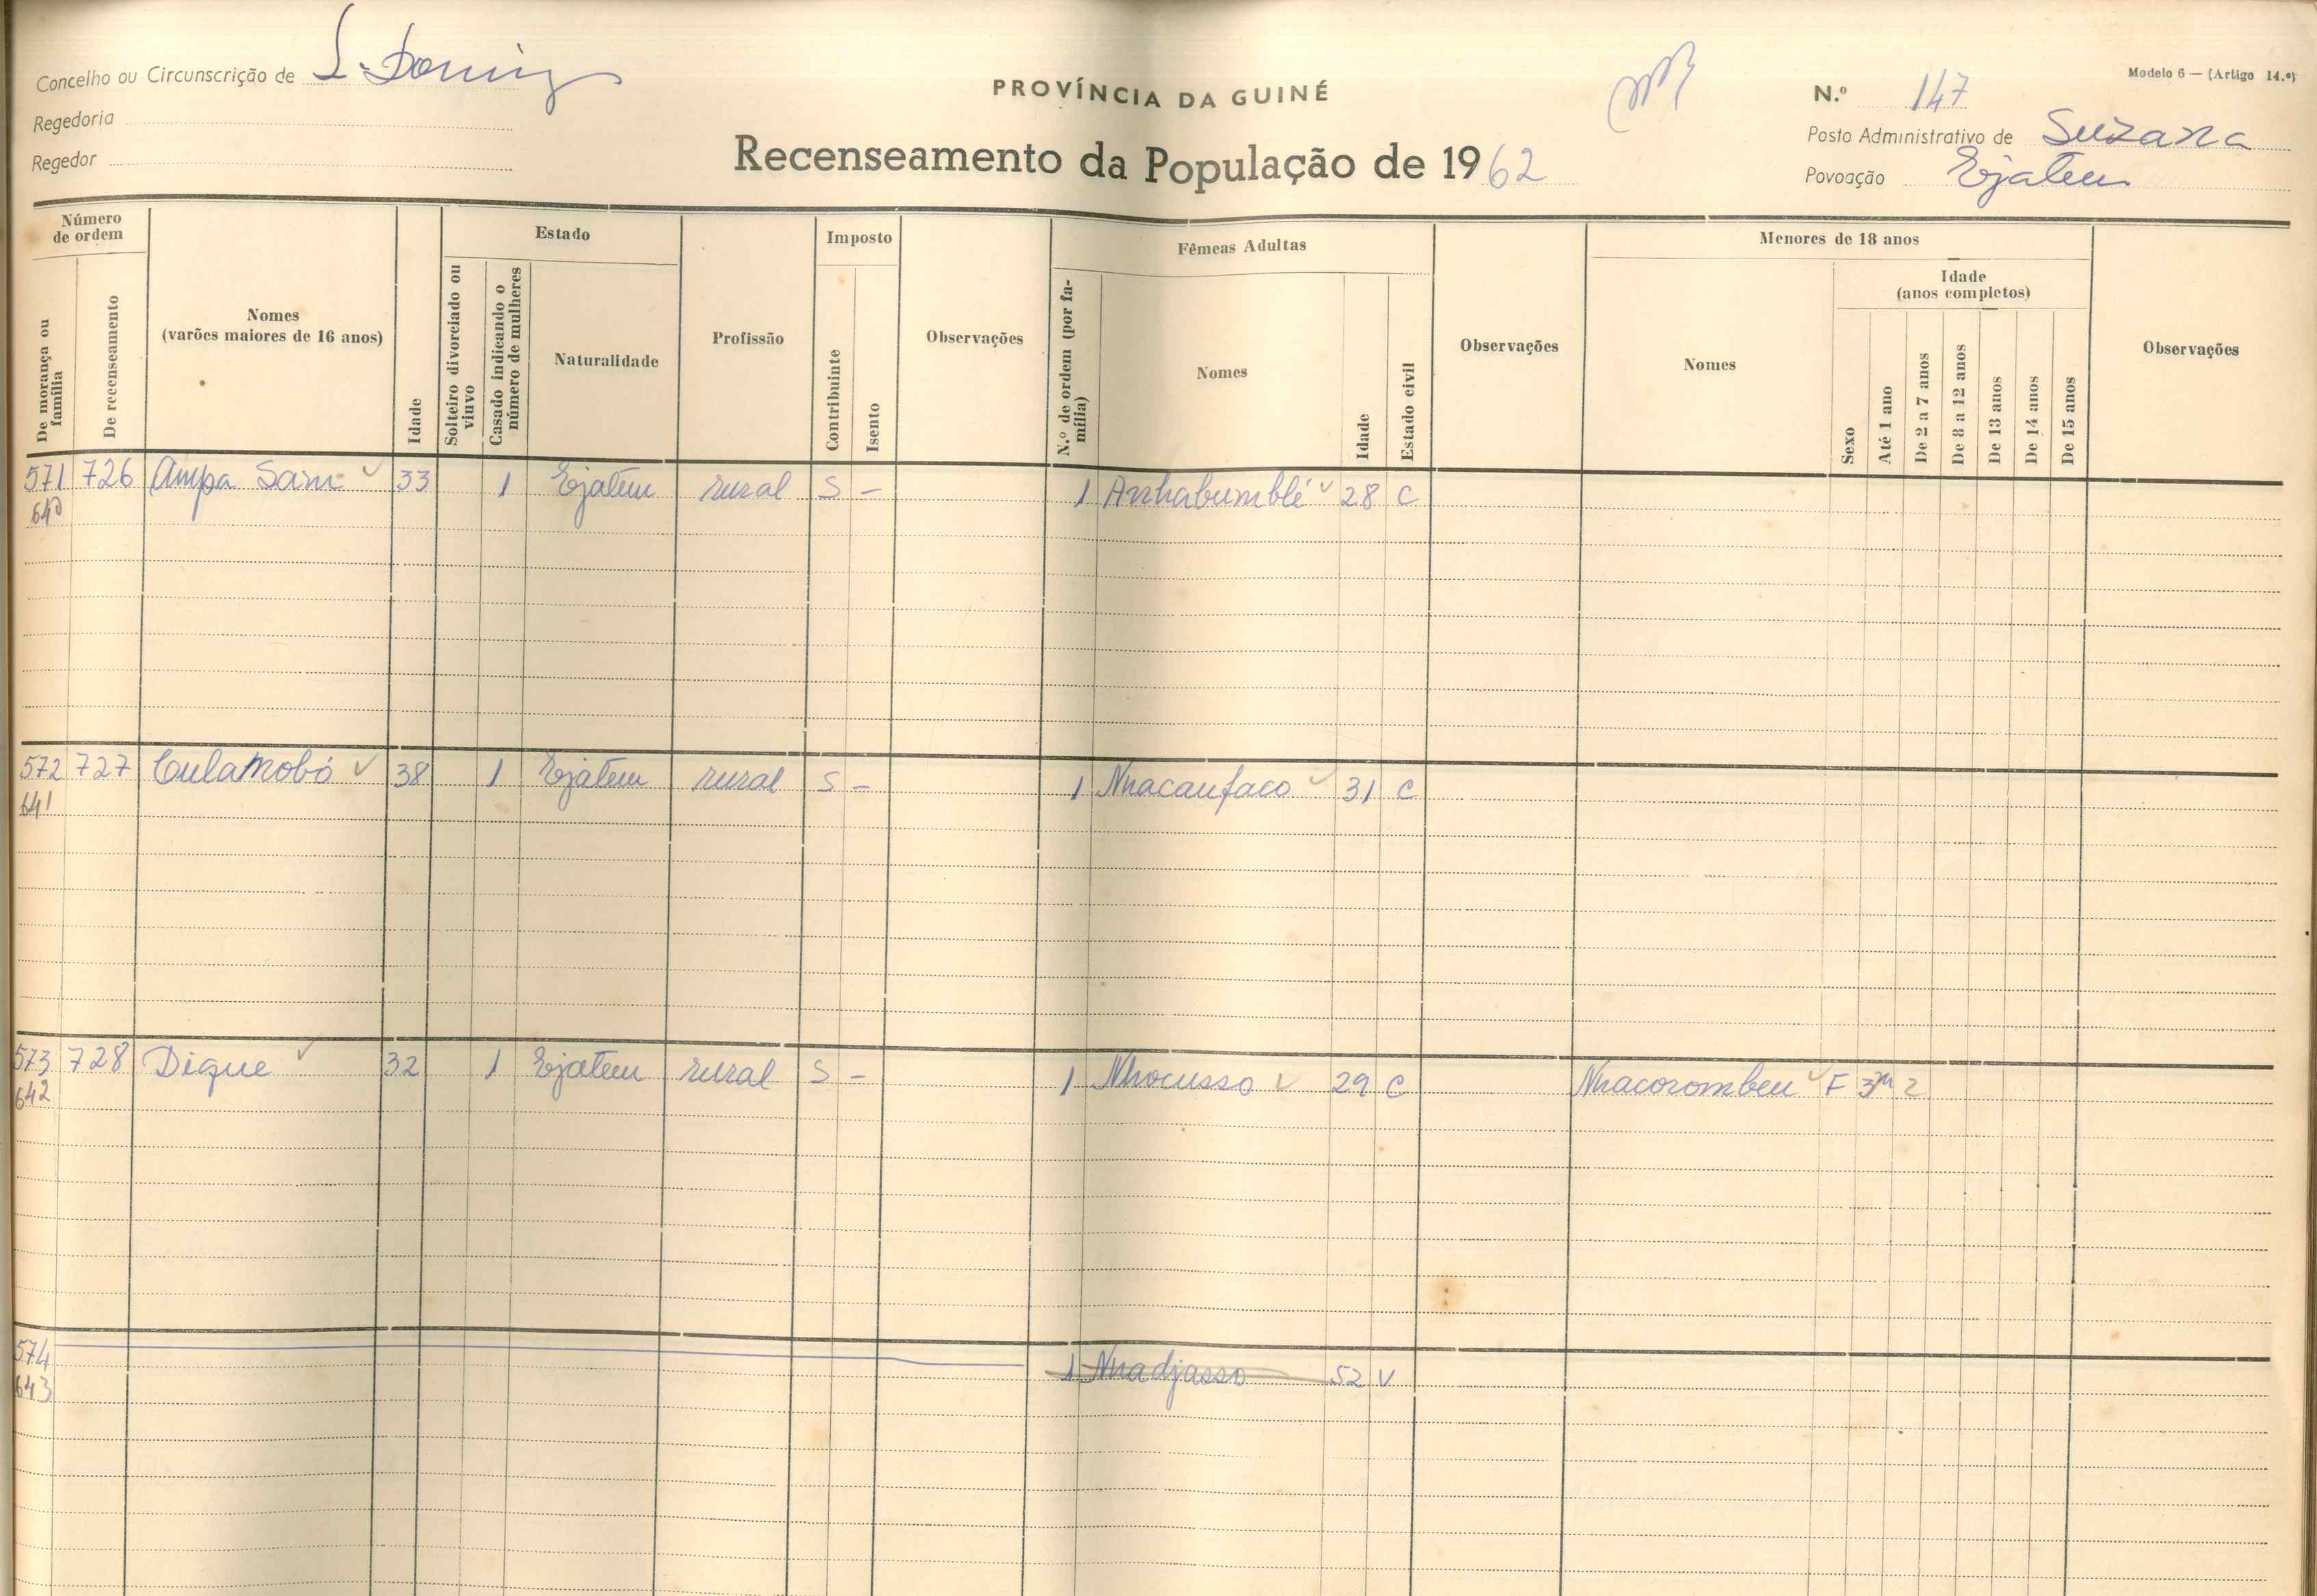 Concelho ou Circunscrição de S. Doming
Regedoria
Regedor
PROVÍNCIA DA GUINÉ
Recenseamento da População de 1962
Modelo 6 — (Artigo 14.º)
N.º 147
Posto Administrativo de Suzana
Povoação Ejatem
Número de ordem
De morança ou família
De recenseamento
Nomes
(varões maiores de 16 anos)
Idade
Estado
Solteiro divorciado ou viuvo
Casado indicando o número de mulheres
Naturalidade
Profissão
Imposto
Contribuinte
Isento
Observações
Fêmeas Adultas
N.º de ordem (por família)
Nomes
Idade
Estado civil
Observações
Menores de 18 anos
Nomes
Sexo
Idade
(anos completos)
Até 1 ano
De 2 a 7 anos
De 8 a 12 anos
De 13 anos
De 14 anos
De 15 anos
Observações
571 726 Ampa Sam 33 1 Ejatem rural S - 1 Anhabumblé 28 C
640
572 727 Culamobó 38 1 Ejatem rural S - 1 Nhacanfaco 31 C
641
573 728 Dique 32 1 Ejatem rural S - 1 Nhocusso 29 C Nhacorombeu F 3m 2
642
574 1 Nhadjasso 52 V
643